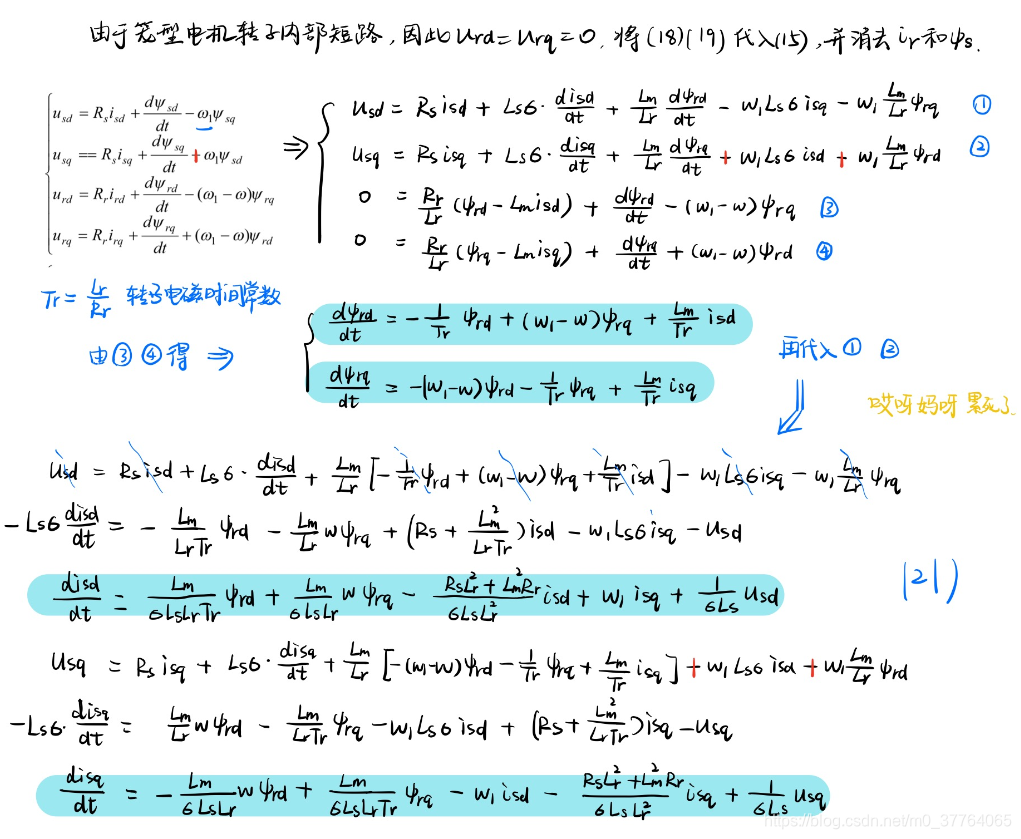 由于笼型电机转子内部短路，因此urd=urq=0. 将(18)(19)代入(15)，并消去ir和ψs.
u_sd = R_s i_sd + dψ_sd/dt − ω₁ψ_sq
u_sq == R_s i_sq + dψ_sq/dt + ω₁ψ_sd
u_rd = R_r i_rd + dψ_rd/dt − (ω₁ − ω)ψ_rq
u_rq = R_r i_rq + dψ_rq/dt + (ω₁ − ω)ψ_rd
⇒
usd = Rs isd + Ls6· disd/dt + Lm/Lr dψrd/dt − w₁Ls6 isq − w₁ Lm/Lr ψrq ①
usq = Rs isq + Ls6· disq/dt + Lm/Lr dψrq/dt + w₁Ls6 isd + w₁ Lm/Lr ψrd ②
0 = Rr/Lr (ψrd − Lm isd) + dψrd/dt − (w₁−w)ψrq ③
0 = Rr/Lr (ψrq − Lm isq) + dψrq/dt + (w₁−w)ψrd ④
Tr = Lr/Rr 转子电磁时间常数
由③ ④得 ⇒
dψrd/dt = − 1/Tr ψrd + (w₁−w)ψrq + Lm/Tr isd
dψrq/dt = −(w₁−w)ψrd − 1/Tr ψrq + Lm/Tr isq
再代入① ②
哎呀妈呀 累死了
usd = Rs isd + Ls6· disd/dt + Lm/Lr [− 1/Tr ψrd + (w₁−w)ψrq + Lm/Tr isd] − w₁Ls6 isq − w₁ Lm/Lr ψrq
−Ls6 disd/dt = − Lm/LrTr ψrd − Lm/Lr wψrq + (Rs + Lm²/LrTr) isd − w₁Ls6 isq − usd
disd/dt = Lm/6LsLrTr ψrd + Lm/6LsLr w ψrq − RsLr²+Lm²Rr/6LsLr² isd + w₁ isq + 1/6Ls usd
(21)
usq = Rs isq + Ls6· disq/dt + Lm/Lr [−(w₁−w)ψrd − 1/Tr ψrq + Lm/Tr isq] + w₁Ls6 isd + w₁ Lm/Lr ψrd
−Ls6· disq/dt = Lm/Lr wψrd − Lm/LrTr ψrq − w₁Ls6 isd + (Rs + Lm²/LrTr) isq − usq
disq/dt = − Lm/6LsLr w ψrd + Lm/6LsLrTr ψrq − w₁ isd − RsLr²+Lm²Rr/6LsLr² isq + 1/6Ls usq
https://blog.csdn.net/m0_37764065